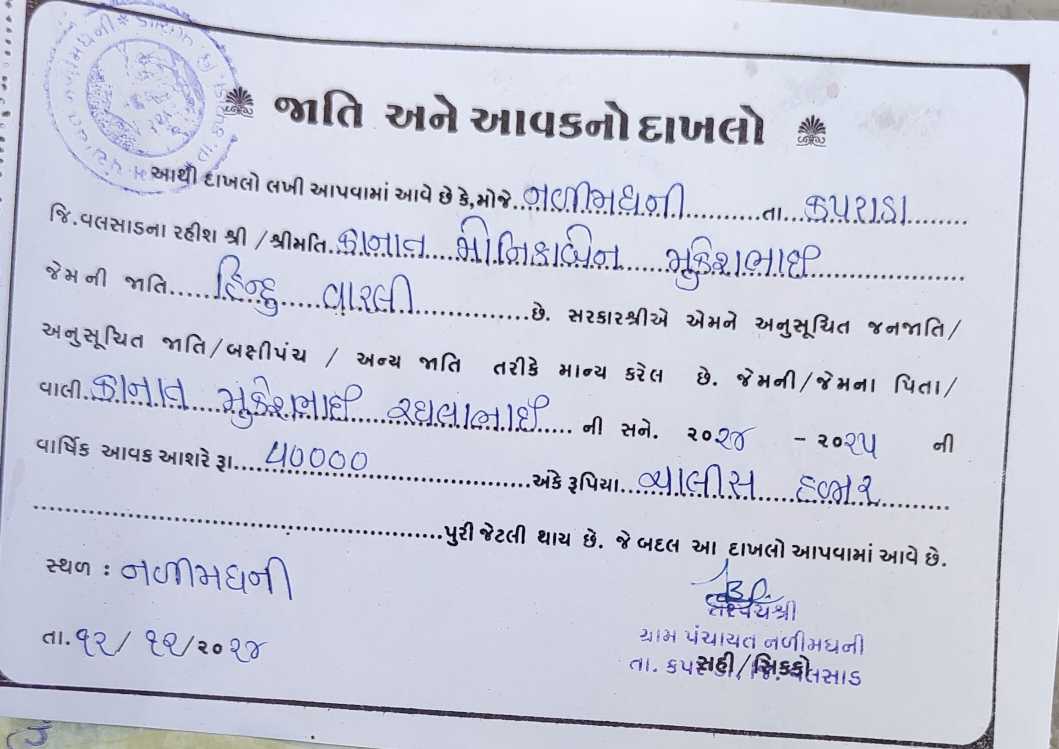 જાતિ અને આવકનો દાખલો
આથી દાખલો લખી આપવામાં આવે છે કે, મોજે. નળીમધની તા. કપરાડા
જિ.વલસાડના રહીશ શ્રી / શ્રીમતિ. કાનાત મોનિકાબેન મુકેશભાઈ
જેમની જાતિ હિન્દુ વારલી છે. સરકારશ્રીએ એમને અનુસૂચિત જનજાતિ/
અનુસૂચિત જાતિ/બક્ષીપંચ / અન્ય જાતિ તરીકે માન્ય કરેલ છે. જેમની/જેમના પિતા/
વાલી. કાનાત મુકેશભાઈ ની સને. ૨૦૨૪ - ૨૦૨૫ ની
વાર્ષિક આવક આશરે રૂા. 40000 અંકે રૂપિયા ચાલીસ હજાર
પુરી જેટલી થાય છે. જે બદલ આ દાખલો આપવામાં આવે છે.
સ્થળ : નળીમધની
તા. ૧૨/ ૧૨/૨૦૨૪
સરપંચશ્રી
ગ્રામ પંચાયત નળીમધની
સહી/સિક્કો